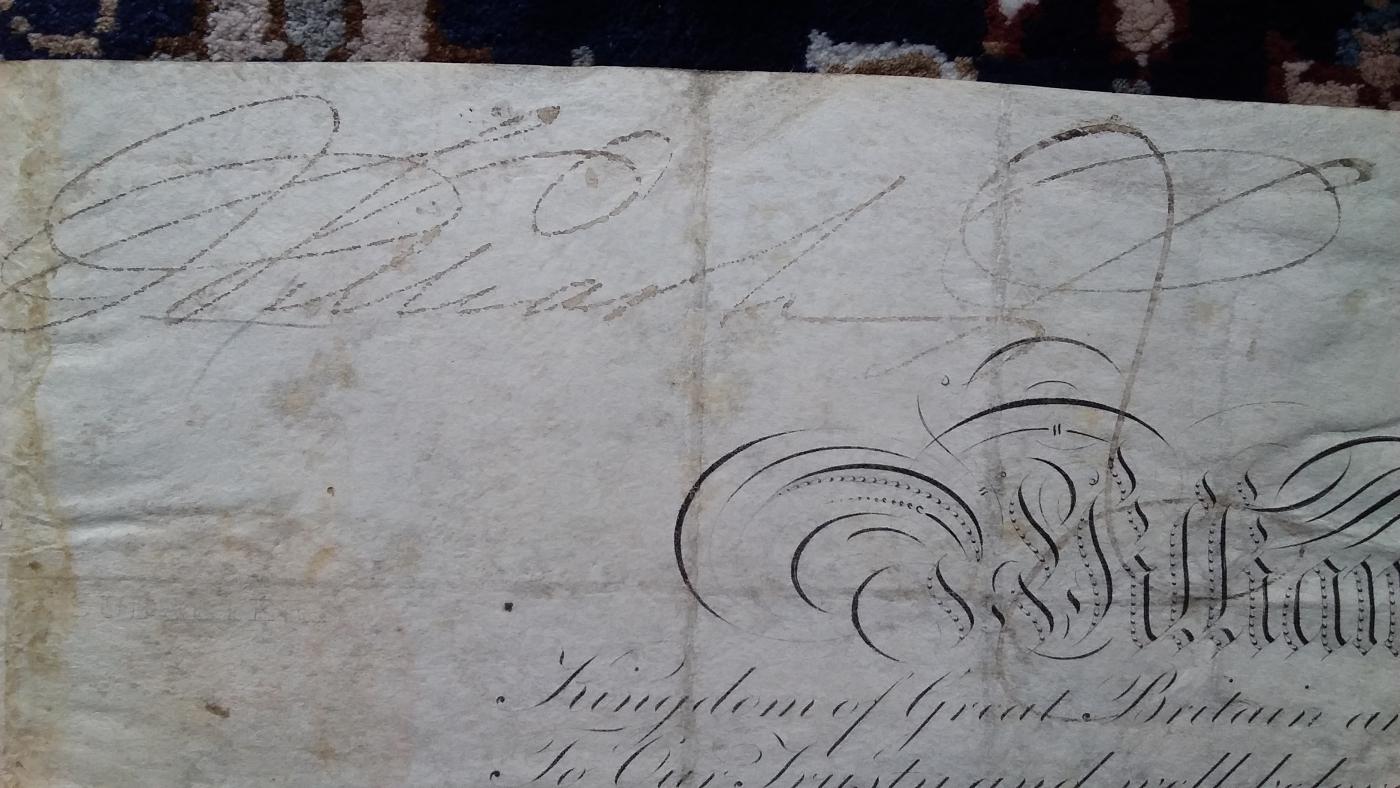 William R
William
Kingdom of Great Britain
To Our Trusty and well